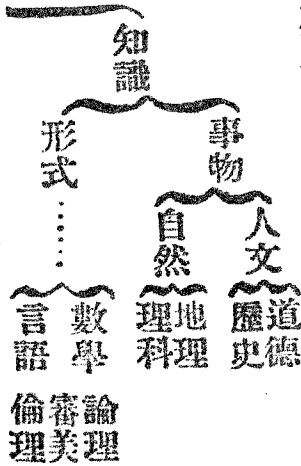 知識
事物
形式……
人文
自然
道德
歷史
地理
理科
數學
言語
論理
審美
倫理